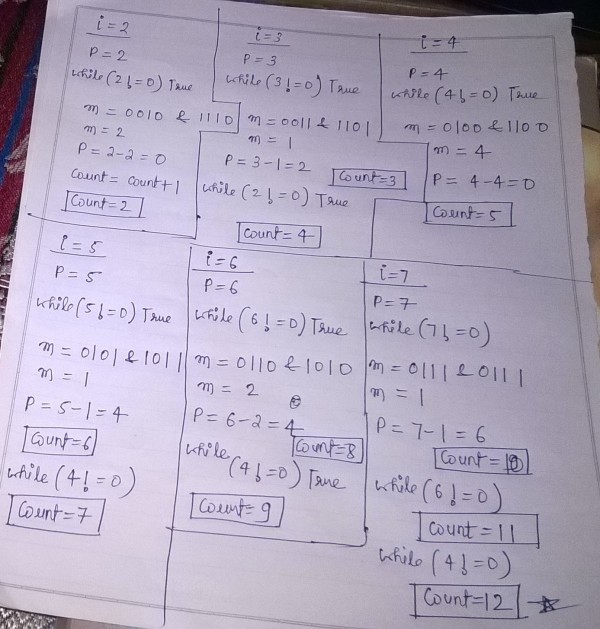 i=2
P=2
while(2!=0) True
m=0010 & 1110
m=2
P=2-2=0
count=count+1
Count=2
i=3
P=3
while(3!=0) True
m=0011 & 1101
m=1
P=3-1=2
Count=3
while(2!=0) True
Count=4
i=4
P=4
while(4!=0) True
m=0100 & 1100
m=4
P=4-4=0
Count=5
i=5
P=5
while(5!=0) True
m=0101 & 1011
m=1
P=5-1=4
Count=6
while(4!=0)
Count=7
i=6
P=6
while(6!=0) True
m=0110 & 1010
m=2
P=6-2=4
Count=8
while(4!=0) True
Count=9
i=7
P=7
while(7!=0)
m=0111 & 0111
m=1
P=7-1=6
Count=10
while(6!=0)
Count=11
while(4!=0)
Count=12